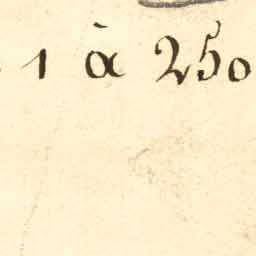 1 à 250